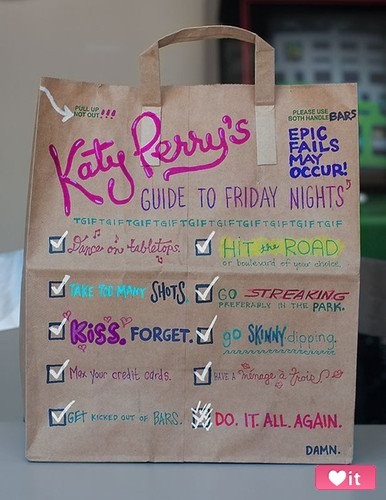 PULL UP
NOT OUT.!!!
PLEASE USE
BOTH HANDLEBARS
EPIC
FAILS
MAY
OCCUR!
Katy Perry's
GUIDE TO FRIDAY NIGHTS
TGIFTGIFTGIFTGIFTGIFTGIFTGIFTGIFTGIFTGIF
Dance on tabletops.
HIT the ROAD
or boulevard of your choice.
TAKE TOO MANY SHOTS.
GO STREAKING
PREFERABLY IN THE PARK.
KISS. FORGET.
go SKINNY dipping.
Max your credit cards.
HAVE A Ménage à Trois
GET KICKED OUT OF BARS.
DO. IT. ALL. AGAIN.
DAMN.
it